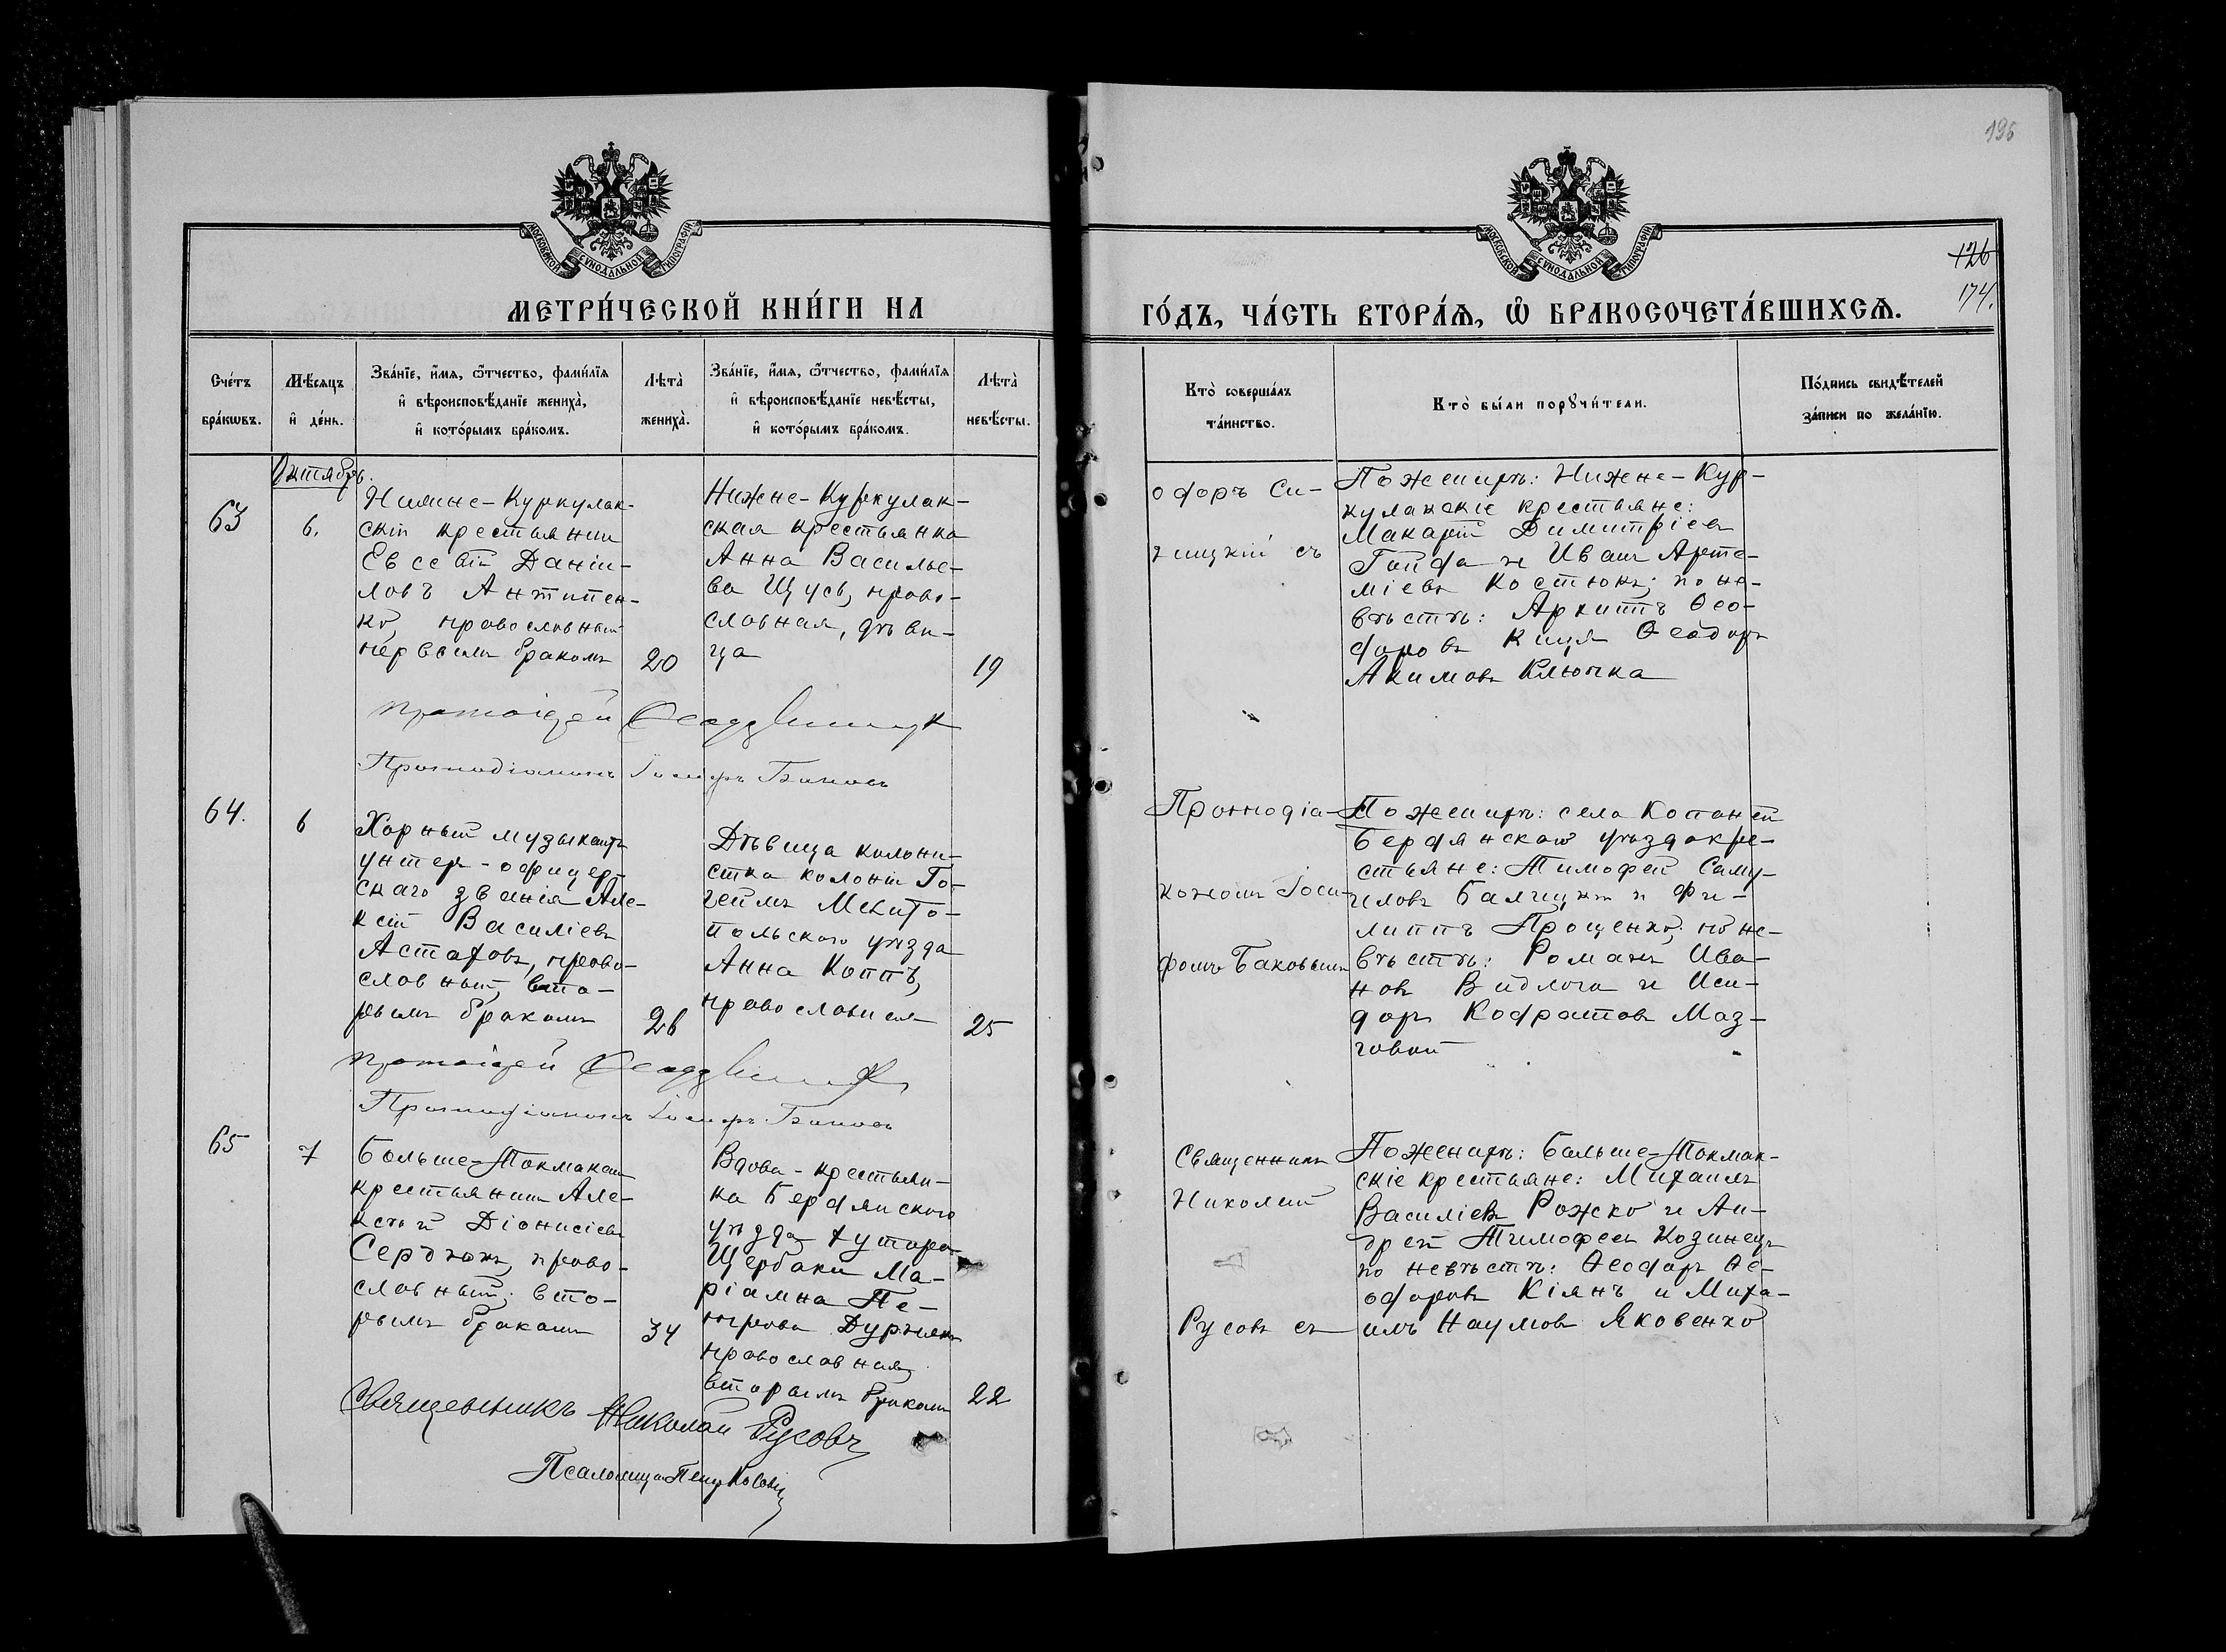 196
МОСКОВСКОЙ СѴНОДАЛЬНОЙ ТИПОГРАФІИ
МЕТРИ́ЧЕСКОЙ КНИ́ГИ НА
Сче́тъ бра́кѡвъ.
Мѣ́сяцъ и҆ де́нь.
Зва́нїе, и҆́мя, ѻ҆́тчество, фами́лїя и҆ вѣроисповѣ́данїе жениха̀, и҆ кото́рымъ бра́комъ.
Лѣта̀ жениха̀.
Зва́нїе, и҆́мя, ѻ҆́тчество, фами́лїя и҆ вѣроисповѣ́данїе невѣ́сты, и҆ кото́рымъ бра́комъ.
Лѣта̀ невѣ́сты.
Октябрь.
63
6.
Нижне-Куркулак-
скій крестьянин
Евсевій Даніи-
ловъ Антипен-
ко, православный
первымъ бракомъ
20
Нижне-Куркулак-
ская крестьянка
Анна Василье-
ва Щусь, право-
славная, дѣви-
ца
19
протоіерей
Протодіаконъ Іосифъ Баковъ
64.
6
Хорный музыкантъ
унтер-офицер-
скаго званія Але-
ксѣй Василіевъ
Астаховъ, право-
славный, вто-
рымъ бракомъ
26
Дѣвица колони-
стка колоніи Го-
геймъ Мелито-
польскаго уѣзда
Анна Коппъ,
православная
25
протоіерей
Протодіаконъ Іосифъ Баковъ
65
7
Больше-Токмакскій
крестьянинъ Але-
ксѣй Діонисіевъ
Сердюкъ, право-
славный; вто-
рымъ бракомъ
34
Вдова-крестьян-
ка Бердянскаго
уѣзда хутора
Щербаки Ма-
ріамна Пе-
трова
православная,
вторымъ бракомъ
22
Священникъ Николай Русовъ
Псаломщ.
МОСКОВСКОЙ СѴНОДАЛЬНОЙ ТИПОГРАФІИ
126
174.
ГО́ДЪ, ЧА́СТЬ ВТОРА́Я, Ѡ҆ БРАКОСОЧЕТА́ВШИХСЯ.
Кто̀ соверша́лъ та́инство.
Кто̀ бы́ли порꙋчи́тели.
По́дпись свидѣ́телей за́писи по жела́нїю.
офоръ Си-
ницкій съ
По женихѣ: Нижне-Кур-
кулакскіе крестьяне:
Макарій Димитріевъ
Гойда и Иванъ Арте-
міевъ Костюкъ; по не-
вѣстѣ: Архиппъ Ѳео-
доровъ Кищя Ѳеодоръ
Акимовъ Клютка
Протодіа-
кономъ Іоси-
фомъ Баковымъ
По женихѣ: села Копаней
Бердянскаго уѣзда кре-
стьяне: Тимофей Саму-
иловъ Балицкій и Фи-
липпъ Проценко; по не-
вѣстѣ: Романъ Ива-
новъ Видлога и Иси-
доръ Кодратовъ Маз-
говой
Священникъ
Николай
Русовъ съ
По женихѣ: Больше-Токмак-
скіе крестьяне: Михаилъ
Василіевъ Рожко и Ан-
дрей Тимофеевъ Козинецъ
по невѣстѣ: Ѳеодоръ Ѳе-
одоровъ Кіянъ и Миха-
илъ Наумовъ Яковенко